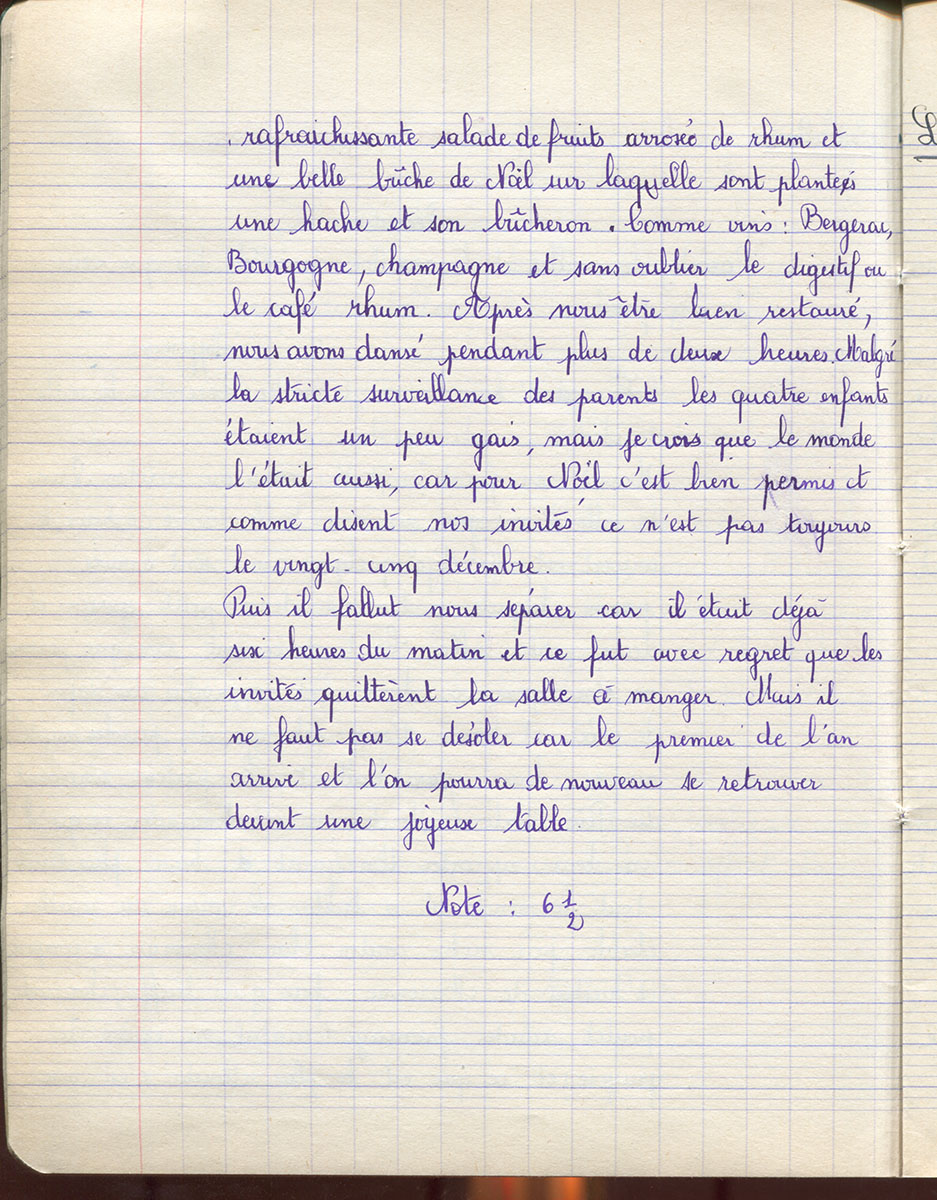 rafraichissante salade de fruits arrosée de rhum et
une belle bûche de Noël sur laquelle sont plantés
une hache et son bûcheron. Comme vins : Bergerac,
Bourgogne, champagne et sans oublier le digestif ou
le café rhum. Après nous être bien restauré,
nous avons dansé pendant plus de deux heures. Malgré
la stricte surveillance des parents les quatre enfants
étaient un peu gais, mais je crois que le monde
l'était aussi, car pour Noël c'est bien permis et
comme disent nos invités ce n'est pas toujours
le vingt-cinq décembre.
Puis il fallut nous séparer car il était déjà
six heures du matin et ce fut avec regret que les
invités quittèrent la salle à manger. Mais il
ne faut pas se désoler car le premier de l'an
arrive et l'on pourra de nouveau se retrouver
devant une joyeuse table.
Note : 6 1/2